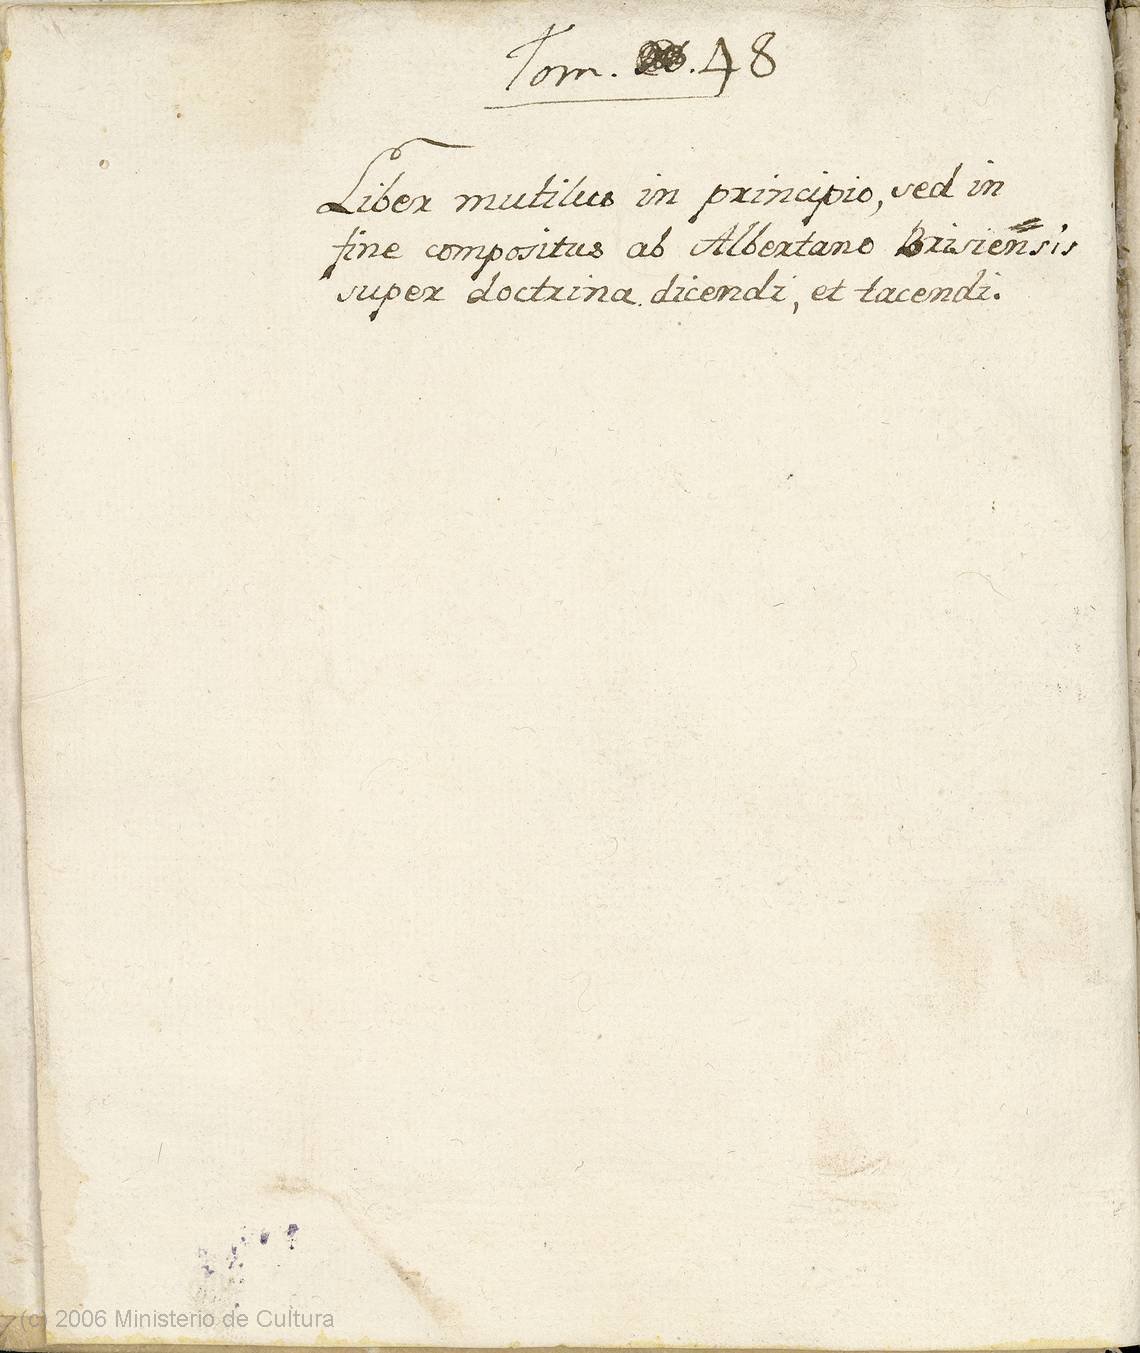 Tom. 48
Liber mutilus in principio, sed in
fine compositus ab Albertano Brisiensis
super doctrina dicendi, et tacendi.
(c) 2006 Ministerio de Cultura